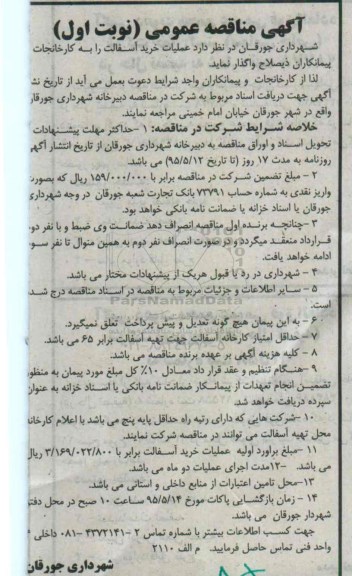 آگهی مناقصه عمومی (نوبت اول)
شهرداری جورقان در نظر دارد عملیات خرید آسفالت را به کارخانجات
پیمانکاران ذیصلاح واگذار نماید.
لذا از کارخانجات و پیمانکاران واجد شرایط دعوت بعمل می آید از تاریخ نشر
آگهی جهت دریافت اسناد مربوط به شرکت در مناقصه دبیرخانه شهرداری جورقان
واقع در شهر جورقان خیابان امام خمینی مراجعه نمایند.
خلاصه شرایط شرکت در مناقصه: ۱ -حداکثر مهلت پیشنهادات
تحویل اسناد و اوراق مناقصه به دبیرخانه شهرداری جورقان از تاریخ انتشار آگهی
روزنامه به مدت ۱۷ روز (تا تاریخ ۹۵/۵/۱۲) می باشد.
۲ - مبلغ تضمین شرکت در مناقصه برابر با ۱۵۹/۰۰۰/۰۰۰ ریال که بصورت
واریز نقدی به شماره حساب ۷۳۷۹۱ بانک تجارت شعبه جورقان در وجه شهرداری
جورقان یا اسناد خزانه یا ضمانت نامه بانکی خواهد بود.
۳ -چنانچه برنده اول مناقصه انصراف دهد ضمانت وی ضبط و با نفر دوم
قرارداد منعقد میگردد و در صورت انصراف نفر دوم به همین منوال تا نفر سوم
ادامه خواهد یافت.
۴ - شهرداری در رد یا قبول هریک از پیشنهادات مختار می باشد.
۵ - سایر اطلاعات و جزئیات مربوط به مناقصه در اسناد مناقصه درج شده
است.
۶ - به این پیمان هیچ گونه تعدیل و پیش پرداخت تعلق نمیگیرد.
۷ - حداقل امتیاز کارخانه آسفالت جهت تهیه آسفالت برابر ۶۵ می باشد.
۸ - کلیه هزینه آگهی بر عهده برنده مناقصه می باشد.
۹ -هنگام تنظیم و عقد قرار داد معادل ۱۰٪ کل مبلغ مورد پیمان به منظور
تضمین انجام تعهدات از پیمانکار ضمانت نامه بانکی یا اسناد خزانه به عنوان
سپرده دریافت خواهد شد.
۱۰ -شرکت هایی که دارای رتبه راه حداقل پایه پنج می باشد با اعلام کارخانه
محل تهیه آسفالت می توانند در مناقصه شرکت نمایند.
۱۱ -مبلغ برآورد اولیه عملیات خرید آسفالت برابر با ۳/۱۶۹/۰۲۲/۸۰۰ ریال
می باشد. ۱۲-مدت اجرای عملیات دو ماه می باشد.
۱۳-محل تامین اعتبارات از منابع داخلی و استانی می باشد.
۱۴ - زمان بازگشایی پاکات مورخ ۹۵/۵/۱۴ ساعت ۱۰ صبح در محل دفتر
شهردار جورقان می باشد.
جهت کسب اطلاعات بیشتر با شماره تماس ۲ -۴۳۷۲۱۴۱ -۰۸۱ داخلی ۴
واحد فنی تماس حاصل فرمایید م الف ۲۱۱۰
شهرداری جورقان
ParsNamadData